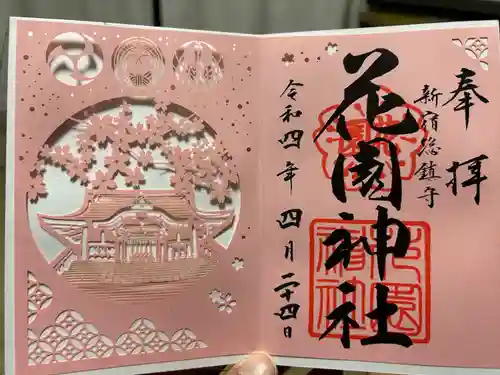 奉拝
新宿総鎮守
花園神社
令和四年 四月 二十四日